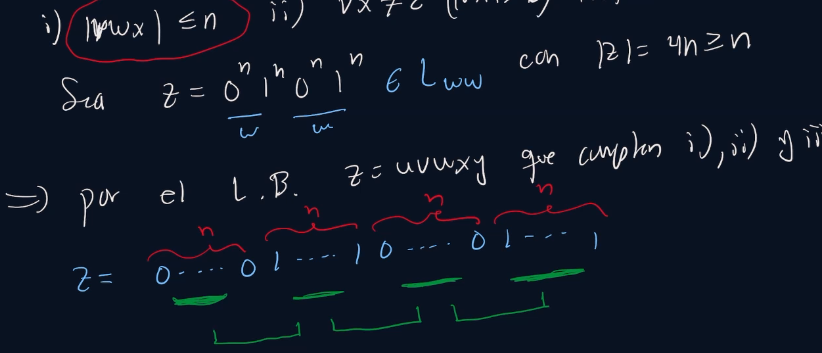 i) |vwx| ≤ n ii) vx ≠ ε
Sea z = 0ⁿ 1ⁿ 0ⁿ 1ⁿ ∈ L ww con |z| = 4n ≥ n
w w
⇒ por el L.B. z = uvwxy que cumplen i), ii) y iii
n n n n
z = 0 ···· 0 1 ···· 1 0 ···· 0 1 --- 1